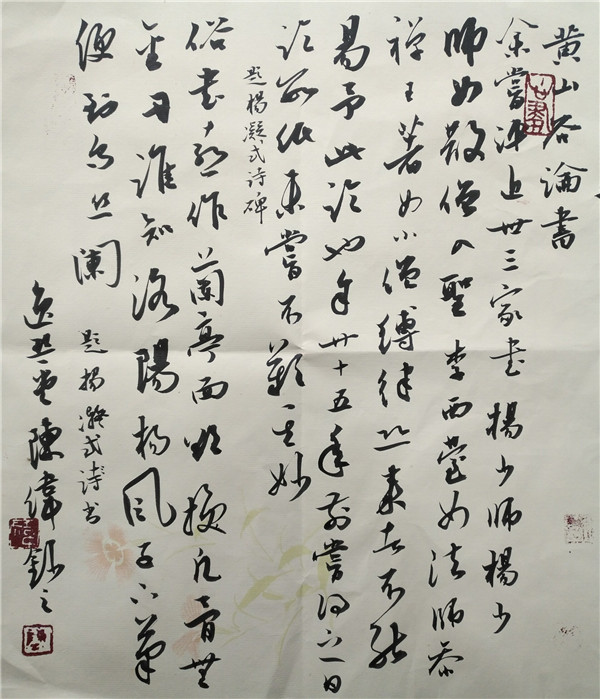 黄山谷論書
余嘗評近世三家書楊少師楊少
師如散僧入聖李西臺如法師參
禪王著如小僧縛律恐來者不能
易予此論也年卅十五年前嘗得之日
臨數紙未嘗不歎其妙
題楊凝式詩碑
俗書作蘭亭面欲換凡骨無
金丹誰知洛陽楊風子下筆
便到烏丝闌
題楊凝式詩书
陳偉之